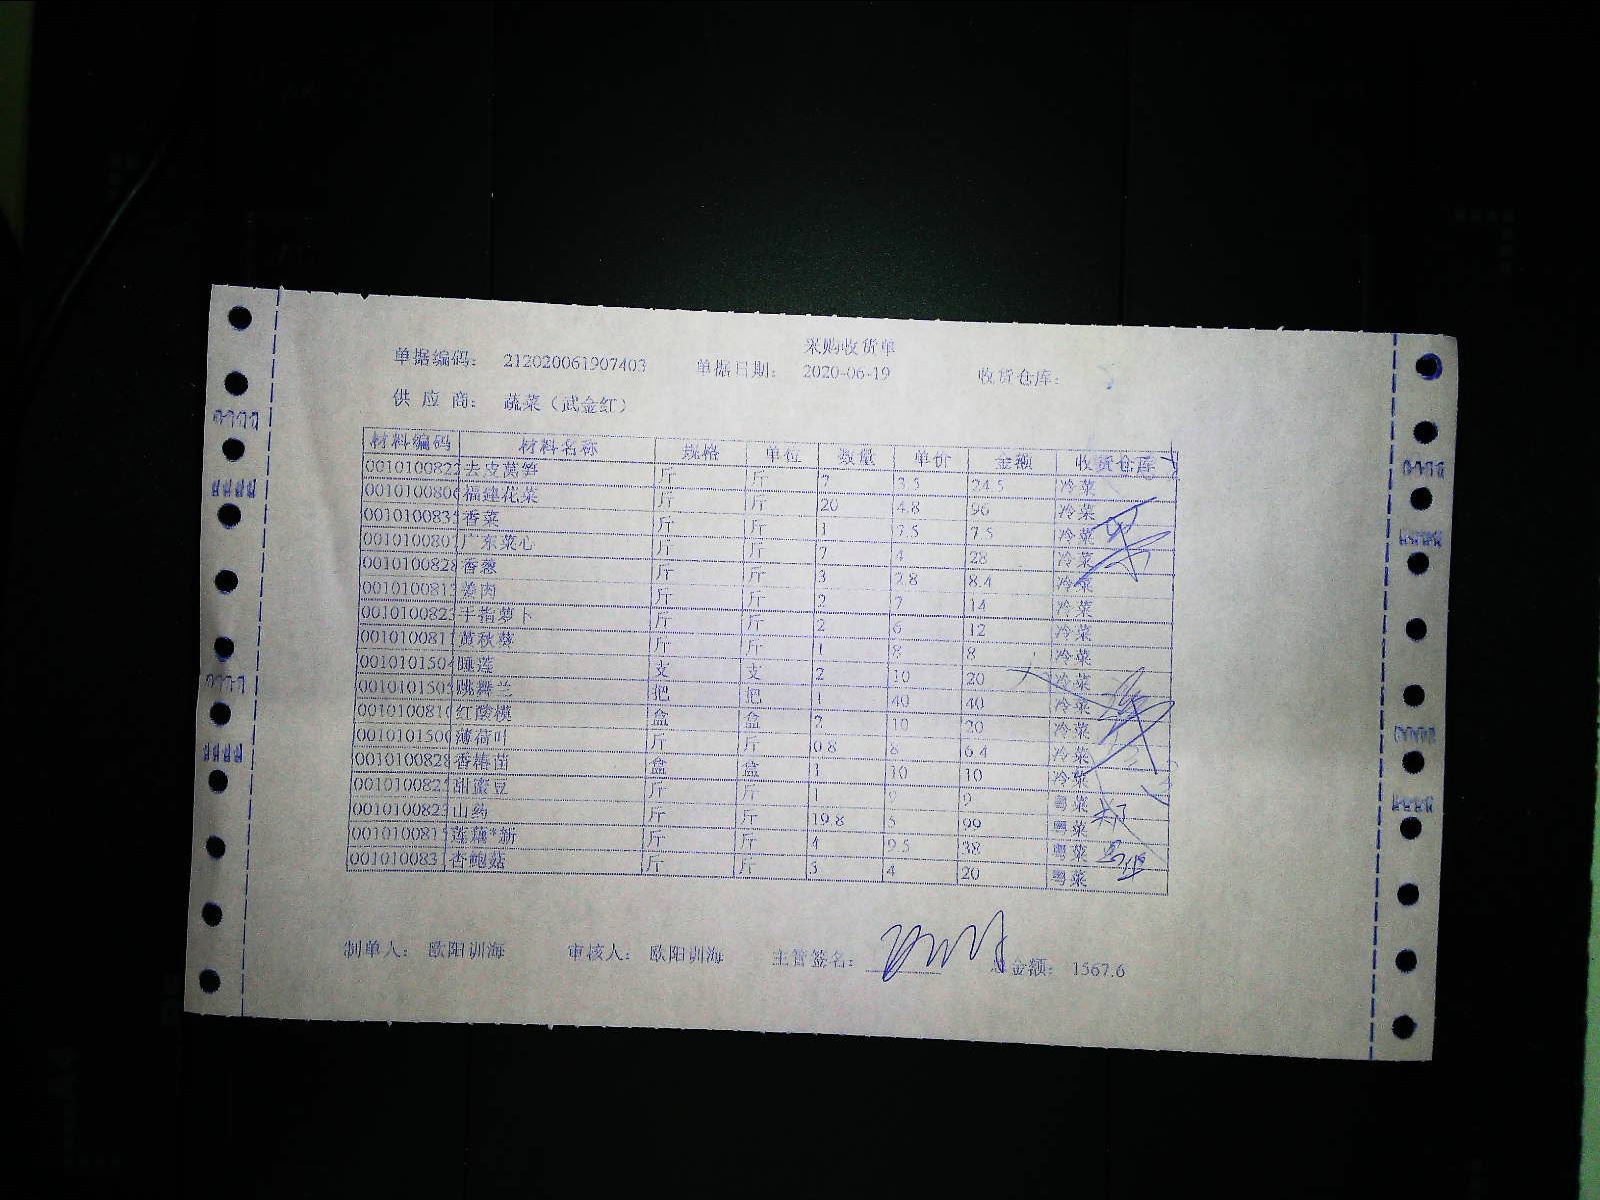 采购收货单
单据编码： 212020061907403 单据日期： 2020-06-19 收货仓库：
供 应 商： 蔬菜（武金红）
材料编码 材料名称 规格 单位 数量 单价 金额 收货仓库
0010100822 去皮莴笋 斤 斤 7 3.5 24.5 冷菜
001010080 福建花菜 斤 斤 20 4.8 96 冷菜
001010083 香菜 斤 斤 1 7.5 7.5 冷菜
001010080 广东菜心 斤 斤 7 4 28 冷菜
0010100828 香葱 斤 斤 3 2.8 8.4 冷菜
001010081 姜肉 斤 斤 2 7 14 冷菜
001010082 手指萝卜 斤 斤 2 6 12 冷菜
001010081 黄秋葵 斤 斤 1 8 8 冷菜
001010150 睡莲 支 支 2 10 20 冷菜
001010150 跳舞兰 把 把 1 40 40 冷菜
001010081 红酸模 盒 盒 2 10 20 冷菜
001010150 薄荷叶 斤 斤 0.8 8 6.4 冷菜
0010100828 香椿苗 盒 盒 1 10 10 冷菜
001010082 甜蜜豆 斤 斤 1 9 9 粤菜
001010082 山药 斤 斤 19.8 5 99 粤菜
001010081 莲藕*新 斤 斤 4 9.5 38 粤菜
001010083 杏鲍菇 斤 斤 5 4 20 粤菜
制单人： 欧阳训海 审核人： 欧阳训海 主管签名： 总金额： 1567.6